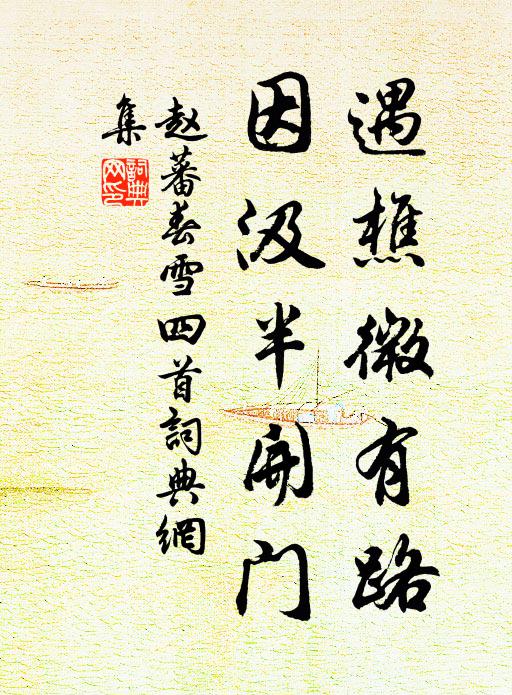 遇樵微有路
因汲半開门
赵蕃春雪四首詞典網
集
詞典网印